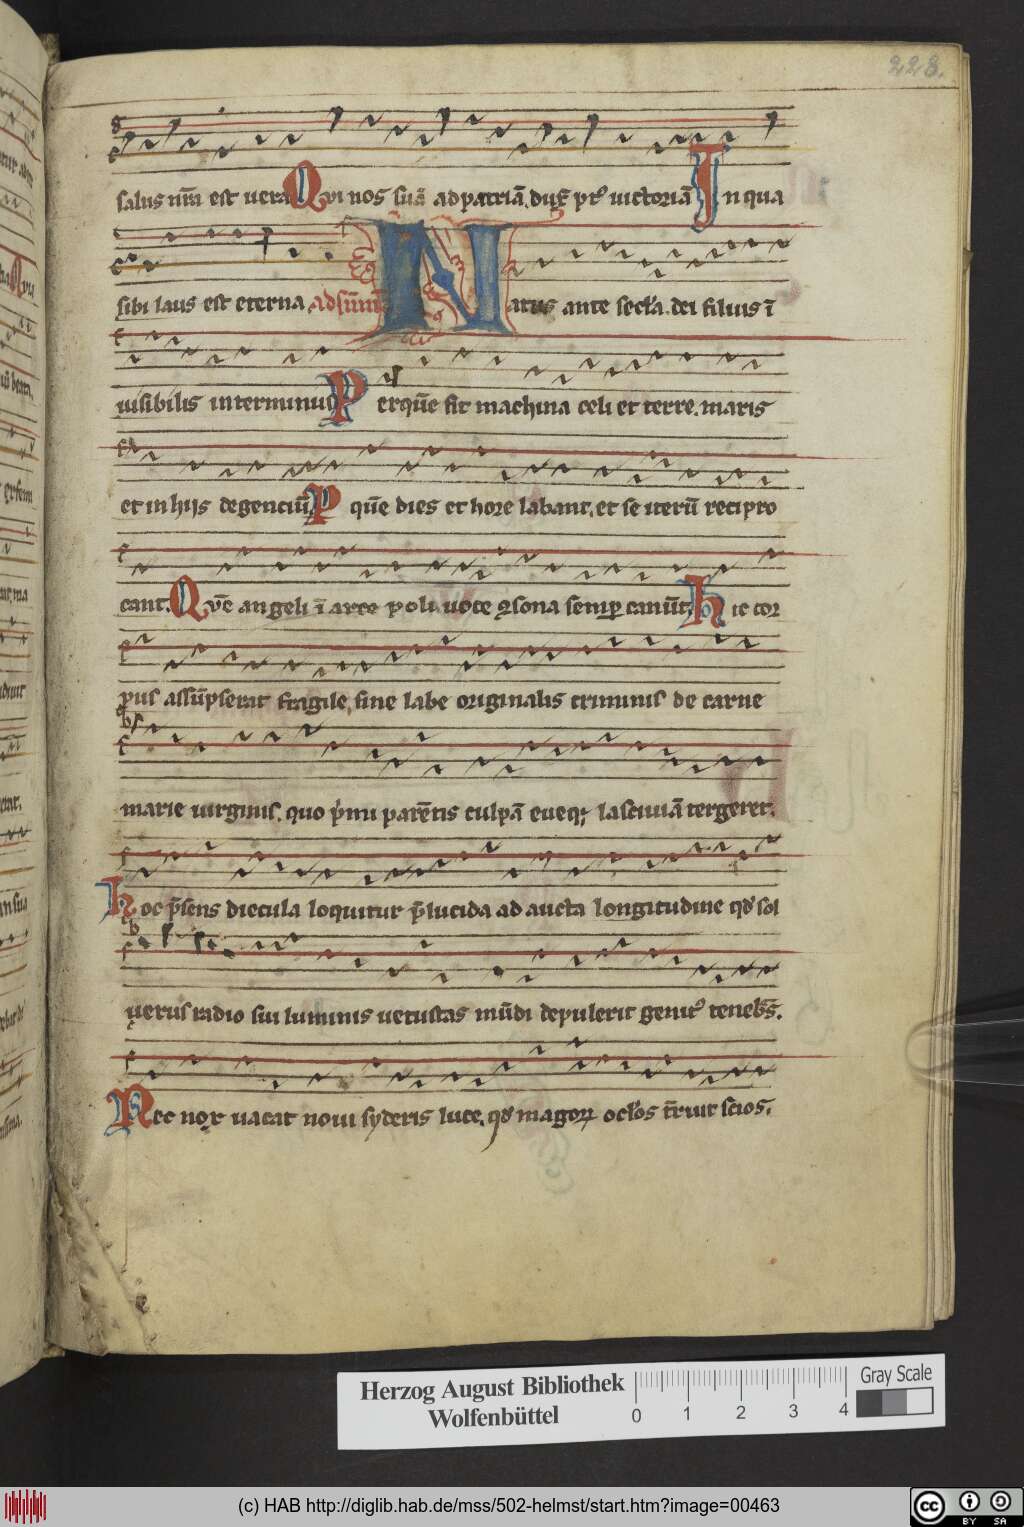 223.
salus nr̄m est uera Qvi nos suā ad patriā. dux̄ pt᷒ uictoriā In qua
sibi laus est eterna. ad sūmā Natus ante secl̄a. dei filius ī
uisibilis interminus Per quē fit machina celi et terre. maris
et in hiis degenciū P quē dies et hore labant. et se iterū recipro
cant. Quē angeli ī arce poli uoce ꝯsona semꝑ canūt. hic cor
pus assūpserat fragile. sine labe originalis criminis de carne
marie uirginis. quo p̓mi parētis culpā eueqꝫ lasciuiā tergeret.
hoc p̄sens diecula loquitur p̄lucida ad aucta longitudine qđ sol
uerus radio sui luminis uetustas mūdi depulerit genit᷒ teneb᷒s.
Nec nox uacat noui syderis luce. qđ magoꝝ ocl̓os t̄ruit scios.
Herzog August Bibliothek
Wolfenbüttel
0 1 2 3 4
Gray Scale
(c) HAB http://diglib.hab.de/mss/502-helmst/start.htm?image=00463
cc BY SA